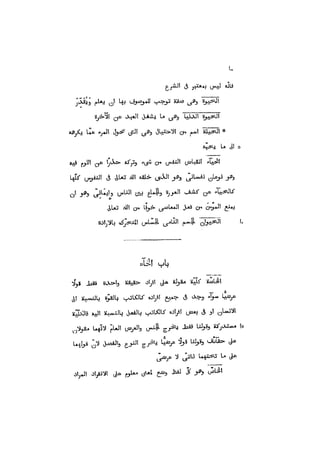 فانّه ليس بمعتبر فى الشرع
الحَيٰوة وهى صفة توجب للموصوف بها ان يعلم ويَقْدِرَ
الحيوة الدنيا وهى ما يشغل العبد عن الآخرة
* الحِيلَة اسم من الاحتيال وهى التى تحول المرء عمّا يكرهه
٥ الى ما يحبّه
الحياء انقباض النفس من شىء وتركه حذرًا عن اللوم فيه
وهو نوعان نفسانىّ وهو الذى خلقه الله تعالى فى النفوس كلّها
كالحياء عن كشف العورة والجماع بين الناس وايمانىّ وهو ان
يمنع المؤمن من فعل المعاصى خوفًا من الله تعالى
١٠ الحَيَوان الجسم النامى الحسّاس المتحرّك بالارادة
باب الخاء
الخاصّة كلّيّة مقولة على افراد حقيقة واحدة فقط قولًا
عرضيًّا سواء وجد فى جميع افراده كالكاتب بالقوّة بالنسبة الى
الانسان او فى بعض افراده كالكاتب بالفعل بالنسبة اليه فالكلّيّة
١٥ مستدركة وقولنا فقط يخرج الجنس والعرض العامّ لانّهما مقولان
على حقائق وقولنا قولًا عرضيًّا يخرج النوع والفصل لانّ قولهما
على ما تحتهما ذاتىّ لا عرضىّ
الخاصّ وهو كلّ لفظ وضع لمعنى معلوم على الانفراد المراد